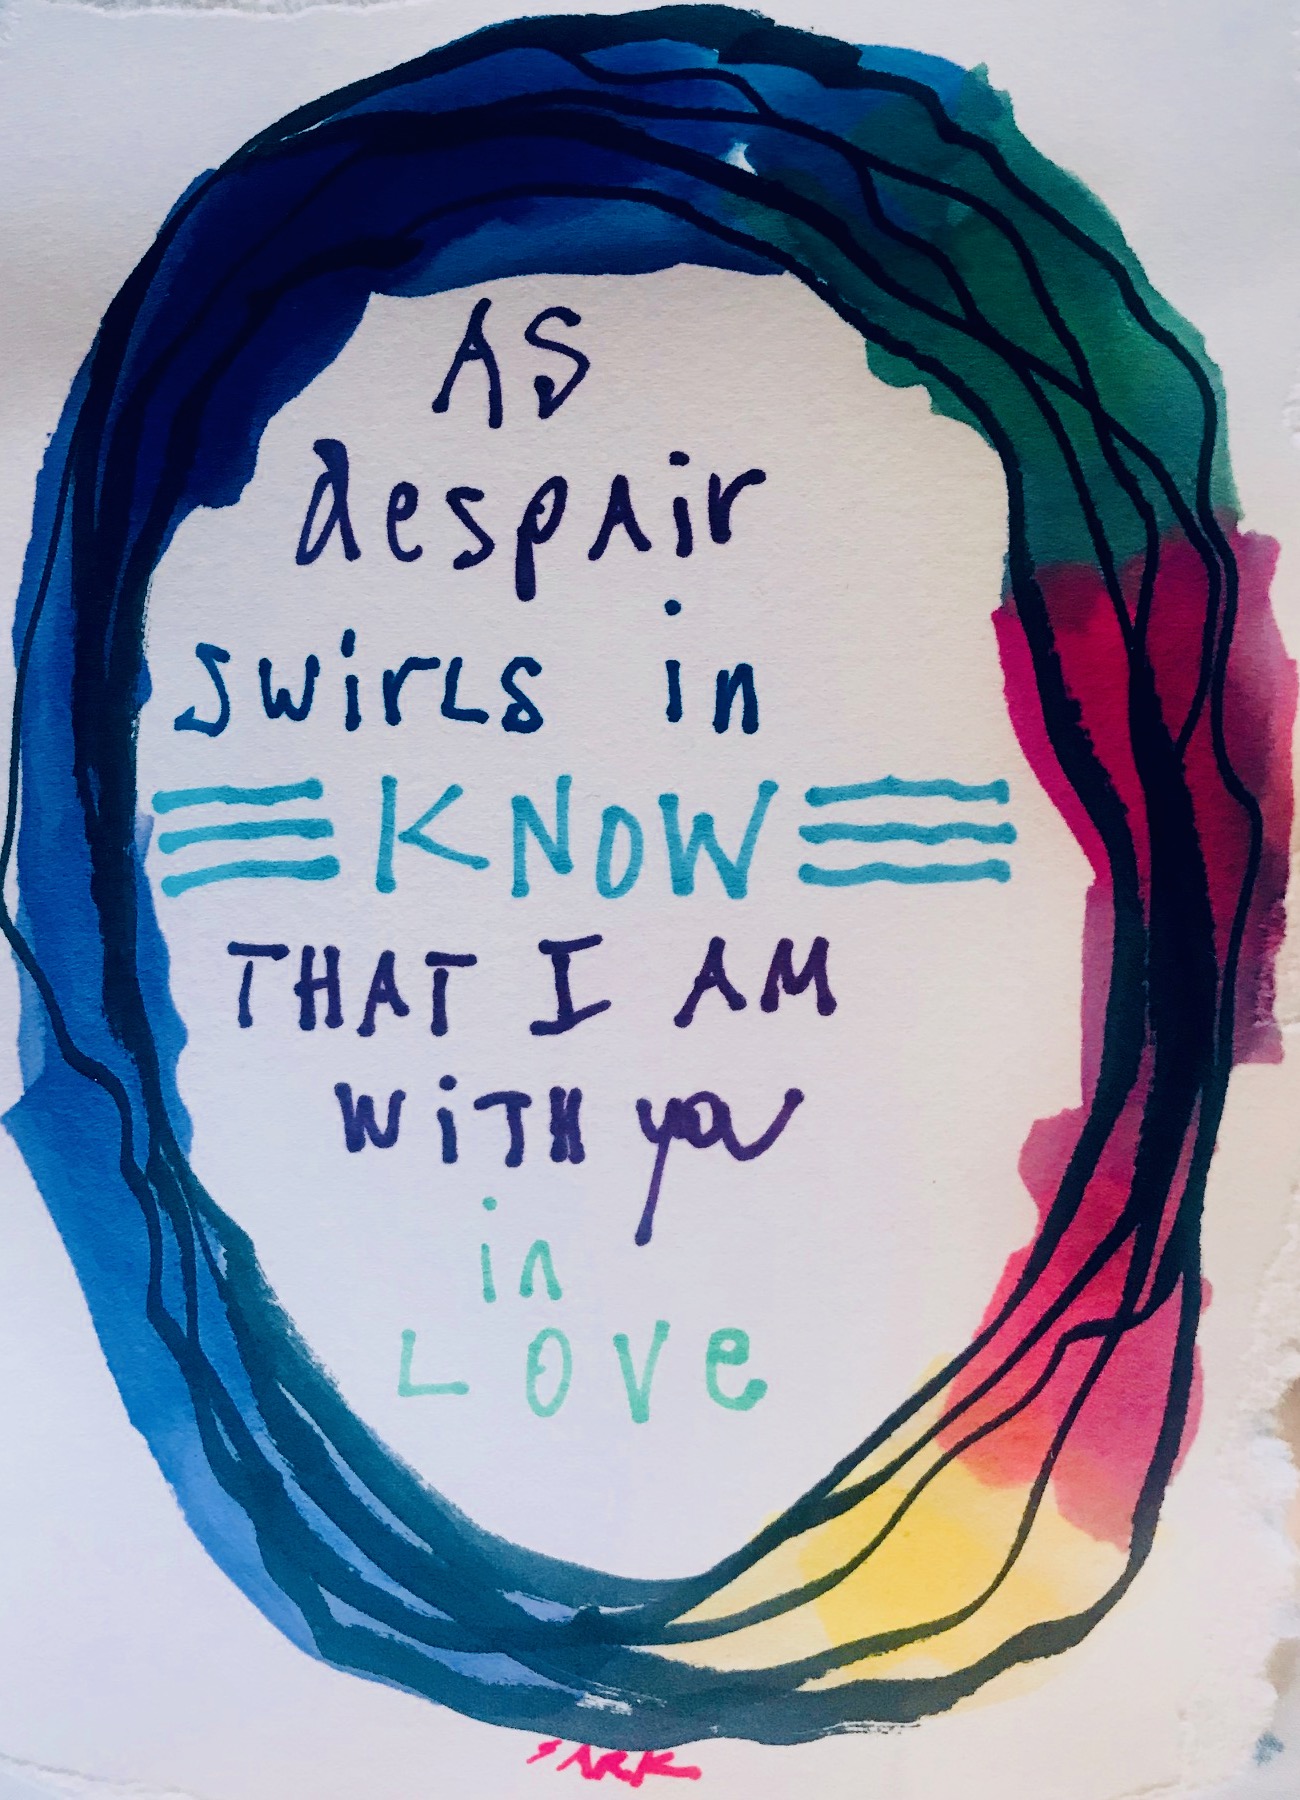 AS
despAir
swirLs in
KNOW
THAT I AM
WiTH you
in
LOVe
SARK